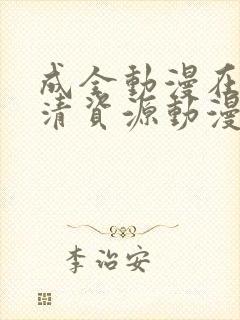 成全動漫在
清資源動漫
李治安